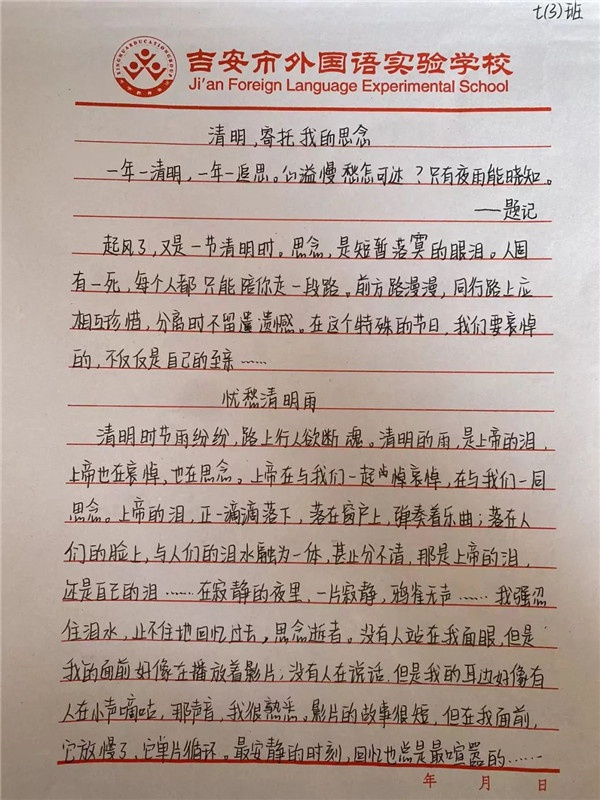 七(3)班
吉安市外国语实验学校
Ji'an Foreign Language Experimental School
清明,寄托我的思念
一年一清明,一年一追思。心溢慢愁怎可述?只有夜雨能晓知。
——题记
起风了,又是一节清明时。思念,是短暂落寞的眼泪。人固
有一死,每个人都只能陪你走一段路。前方路漫漫,同行路上应
相互珍惜,分离时不留遗憾。在这个特殊的节日,我们要哀悼
的,不仅仅是自己的至亲……
忧愁清明雨
清明时节雨纷纷,路上行人欲断魂。清明的雨,是上帝的泪,
上帝也在哀悼,也在思念。上帝在与我们一起哀悼,在与我们一同
思念。上帝的泪,正一滴滴落下,落在窗户上,弹奏着乐曲;落在人
们的脸上,与人们的泪水融为一体,甚止分不清,那是上帝的泪,
还是自己的泪……在寂静的夜里,一片寂静,鸦雀无声……我强忍
住泪水,止不住地回忆过去,思念逝者。没有人站在我面眼,但是
我的面前好像在播放着影片;没有人在说话,但是我的耳边好像有
人在小声嘀咕,那声音,我很熟悉。影片的故事很短,但在我面前,
它放慢了,它单片循环。最安静的时刻,回忆也总是最喧嚣的……
年 月 日